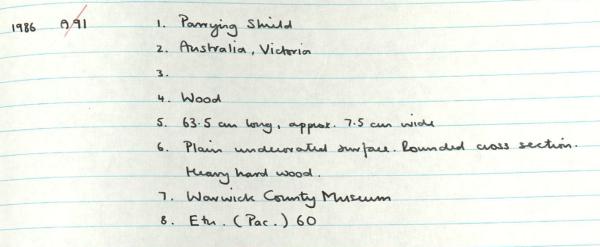 1986 A91 1. Parrying Shield
2. Australia, Victoria
3.
4. Wood
5. 63.5 cm long, approx. 7.5 cm wide
6. Plain undecorated surface. Rounded cross section.
Heavy hard wood.
7. Warwick County Museum
8. Etn. (Pac.) 60